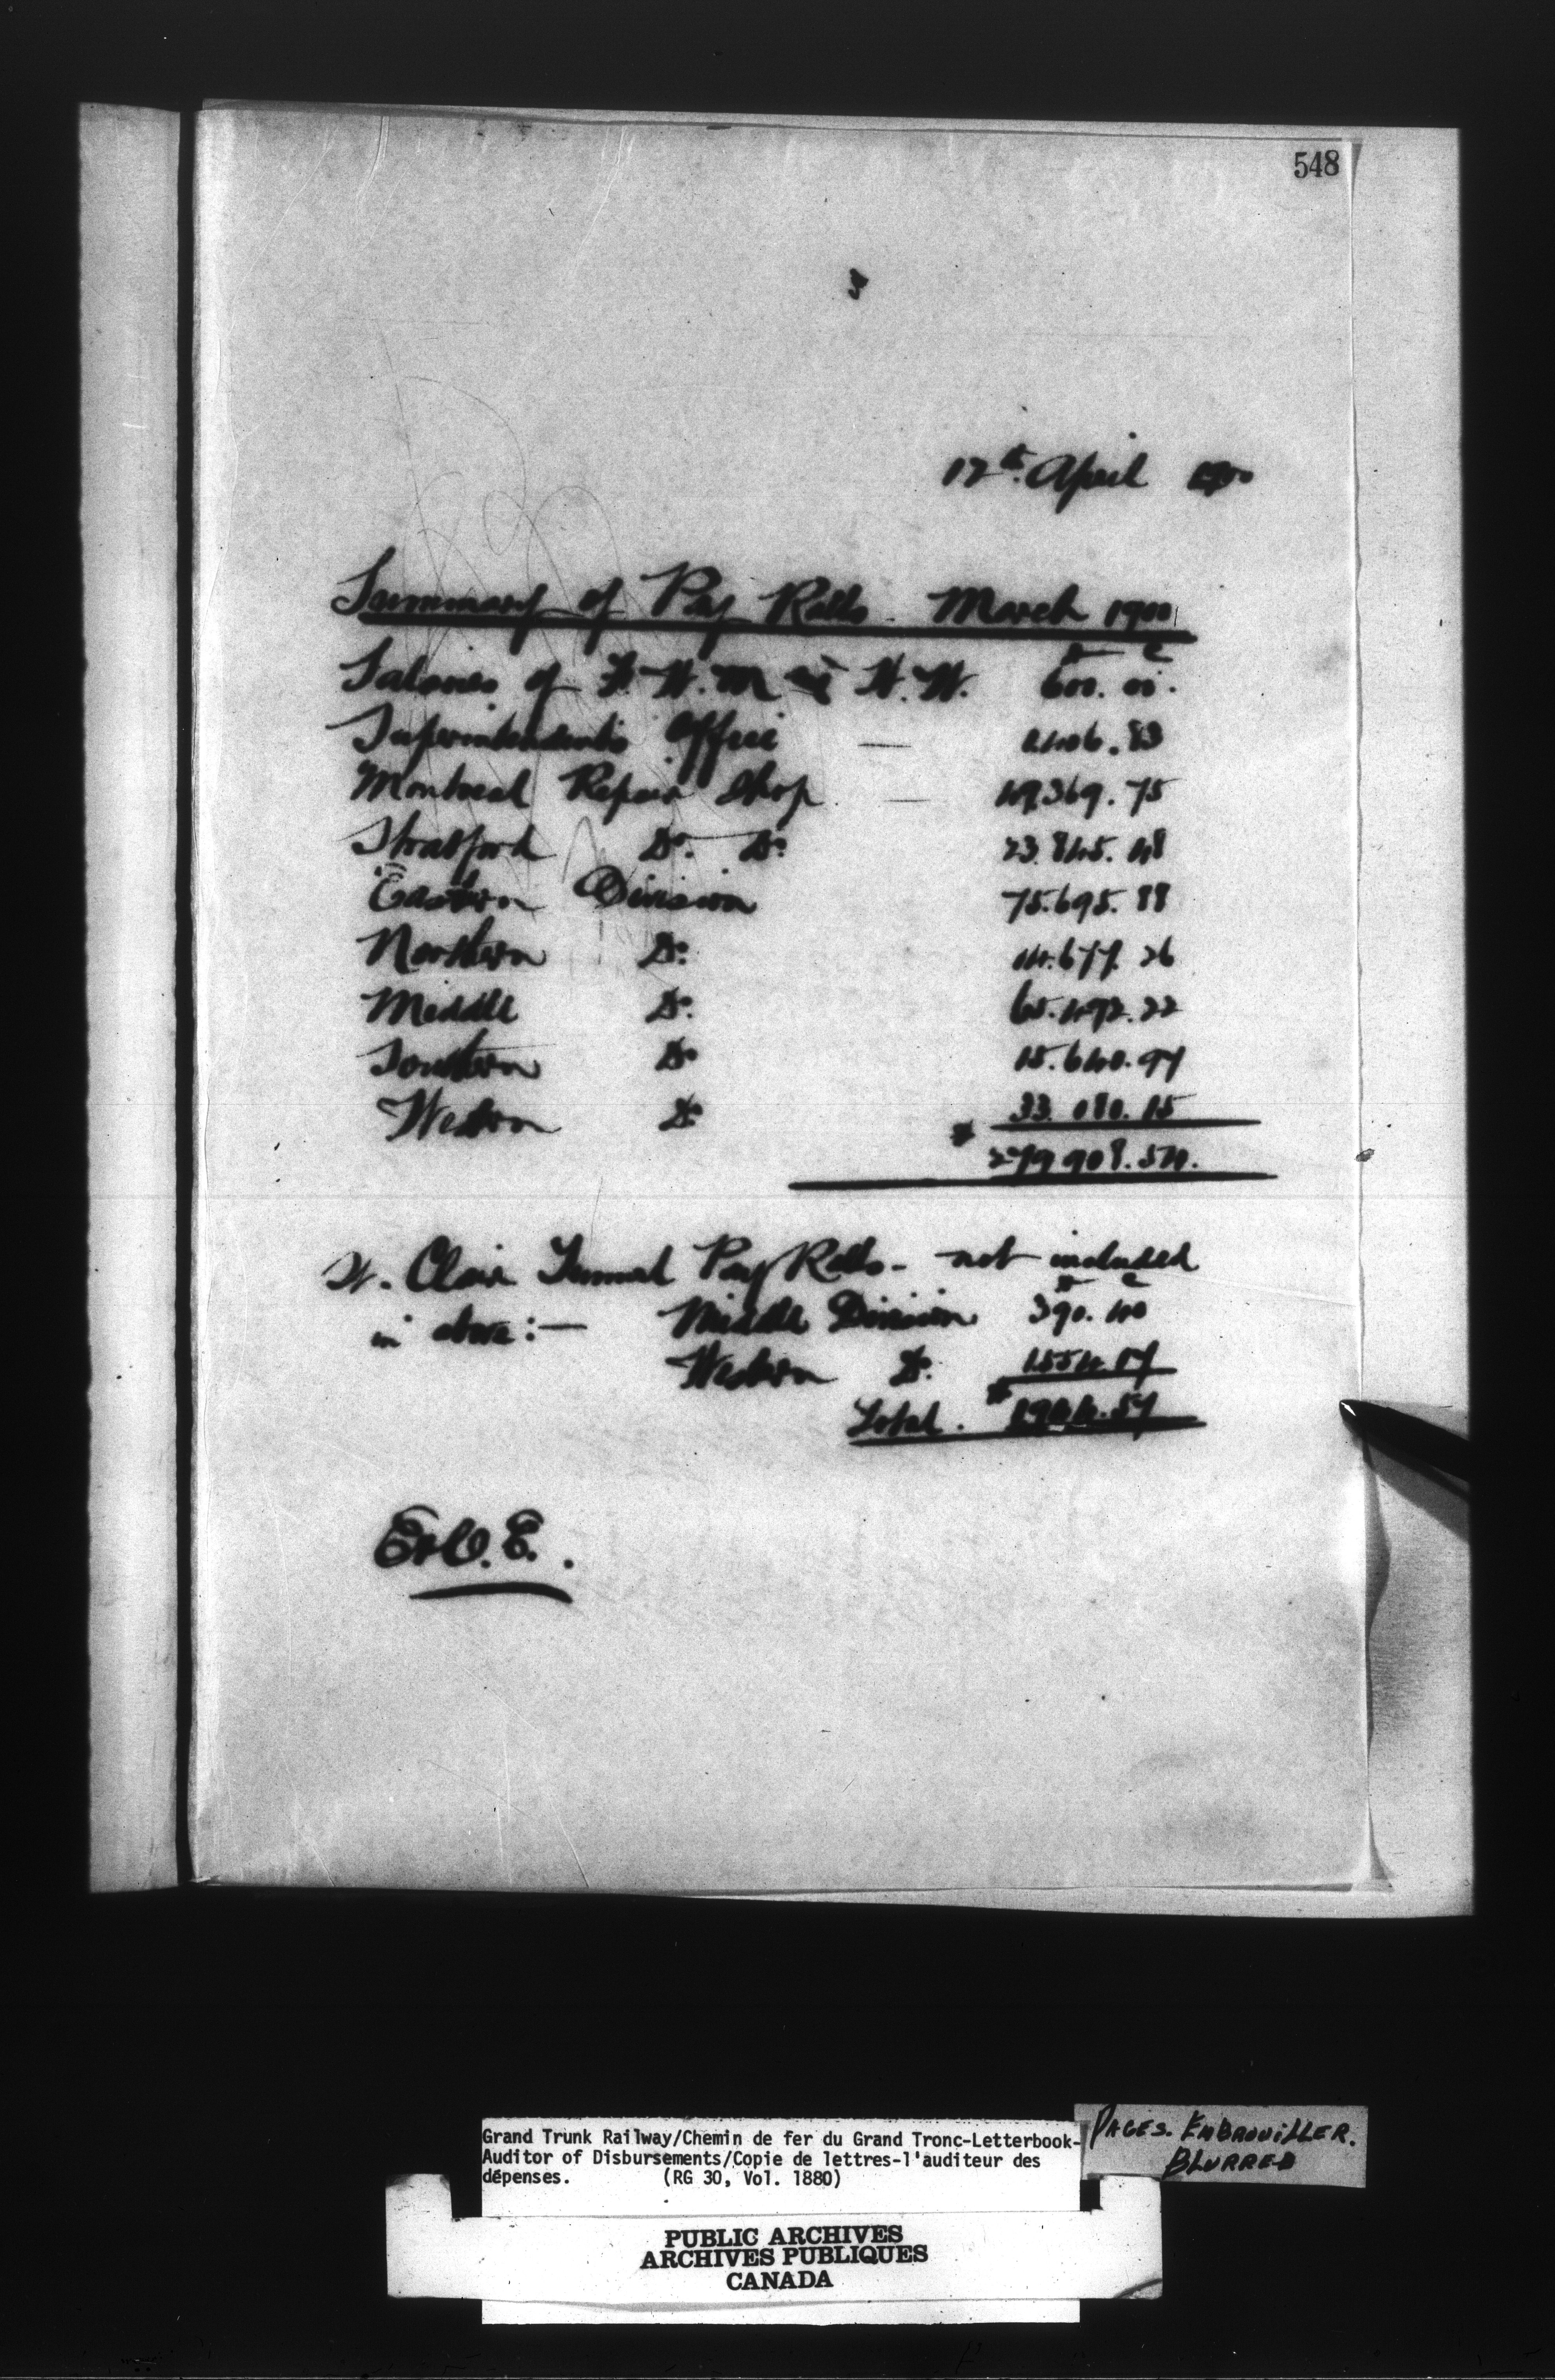 548
12th April 1900
Summary of Pay Rolls - March 1900
$ c
Salaries of F. H. M and H. W. 600. 00.
Superintendents Office — 1406. 83
Montreal Repair Shop — 49,369. 75
Stratford Do. Do. 23. 845. 48
Eastern Division 75. 695. 88
Northern Do. 14. 677. 26
Middle Do. 65. 492. 22
Southern Do 15. 640. 97
Western Do 33. 180. 15
$ 279 908. 54.
St. Clair Tunnel Pay Rolls - not included
$ c
in above :— Middle Division 390. 40
Western Do. 1554. 17
Total. $ 1944. 57
E & O. E.
Grand Trunk Railway/Chemin de fer du Grand Tronc-Letterbook-
Auditor of Disbursements/Copie de lettres-l'auditeur des
dépenses. (RG 30, Vol. 1880)
PAGES. EMBROUILLER.
BLURRED
PUBLIC ARCHIVES
ARCHIVES PUBLIQUES
CANADA